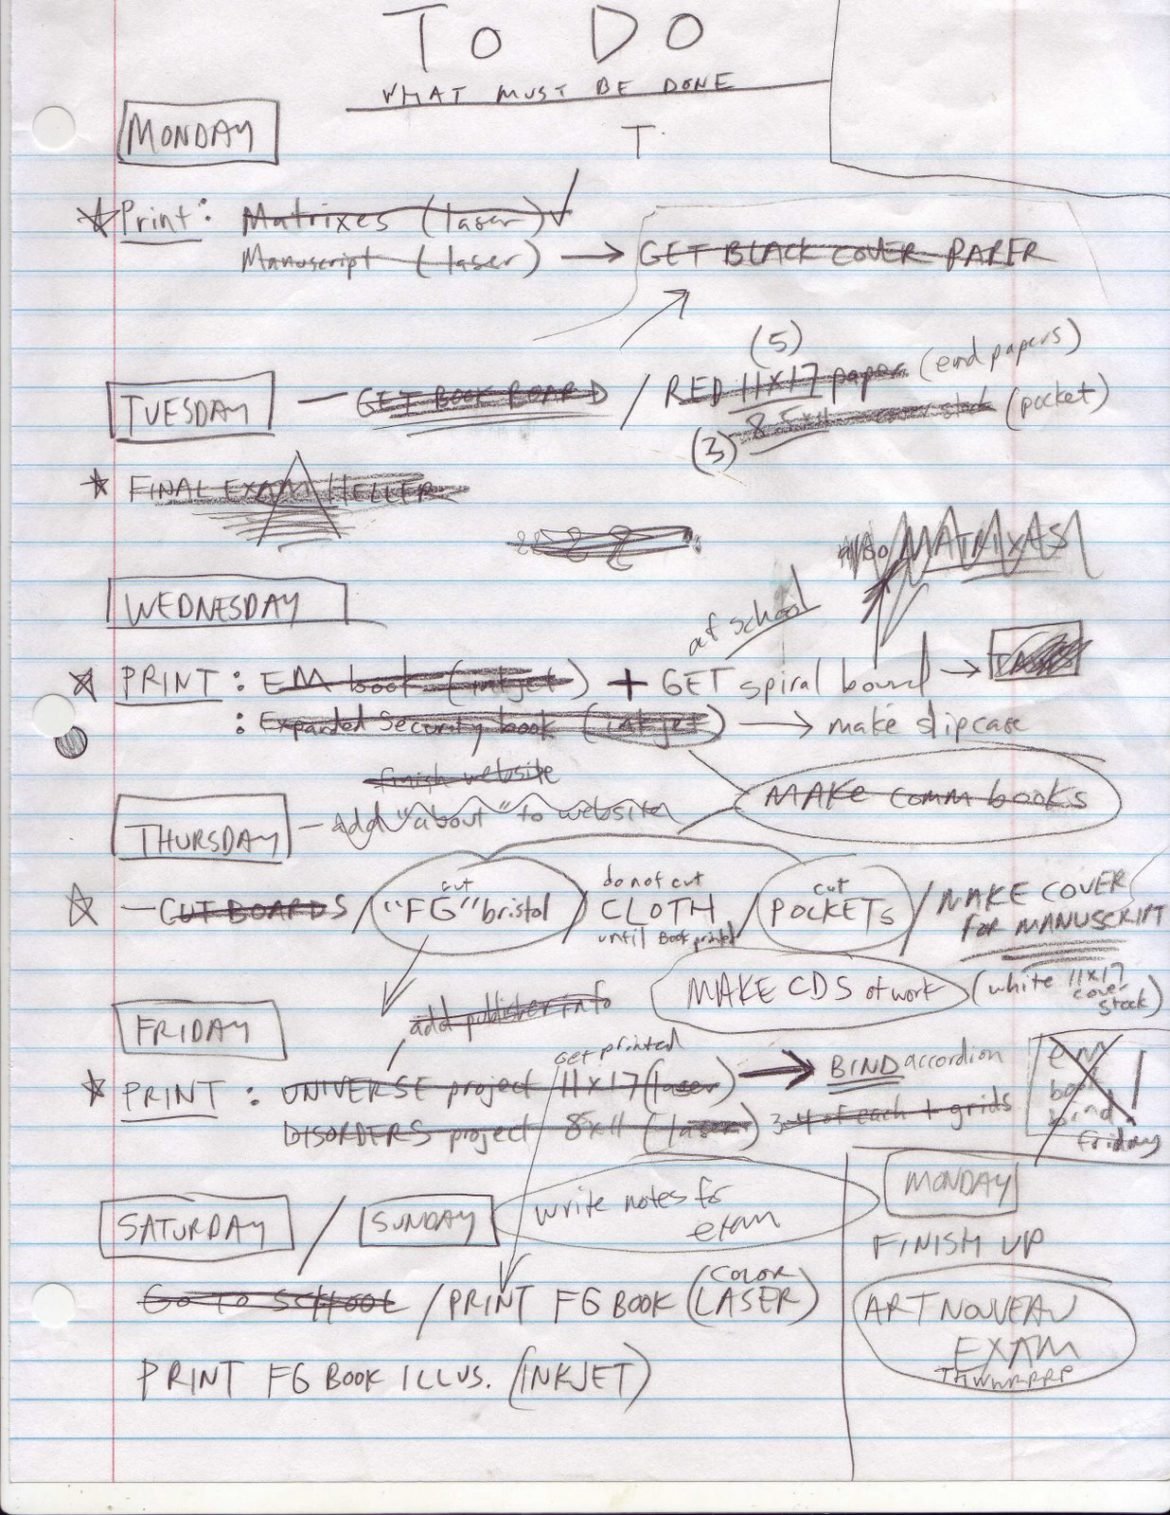 TO DO
WHAT MUST BE DONE
MONDAY
T
Print: Matrixes (laser)
Manuscript (laser) → GET BLACK COVER PAPER
(5)
TUESDAY — GET BOOK BOARD / RED 11x17 paper (end papers)
(3) 8.5x11 cover stock (pocket)
FINAL EXAM HELLER
also MATRIXAS
WEDNESDAY
at school
PRINT: EM book (inkjet) + GET spiral bound →
: Expanded Security book (inkjet) → make slipcase
finish website
MAKE comm books
THURSDAY — add "about" to website
— CUT BOARDS / cut "FG" bristol / do not cut CLOTH until Book printed / cut POCKETS / MAKE COVER FOR MANUSCRIPT
MAKE CDS of work (white 11x17 cover stock)
FRIDAY
add publisher info
get printed
PRINT: UNIVERSE project 11x17 (laser) → BIND accordion
DISORDERS project 8x11 (laser) 3-4 of each + grids
em book bind friday !
SATURDAY / SUNDAY write notes for exam
Go to SCHOOL / PRINT FG BOOK (COLOR LASER)
PRINT FG BOOK ILLUS. (INKJET)
MONDAY
FINISH UP
ART NOUVEAU
EXAM